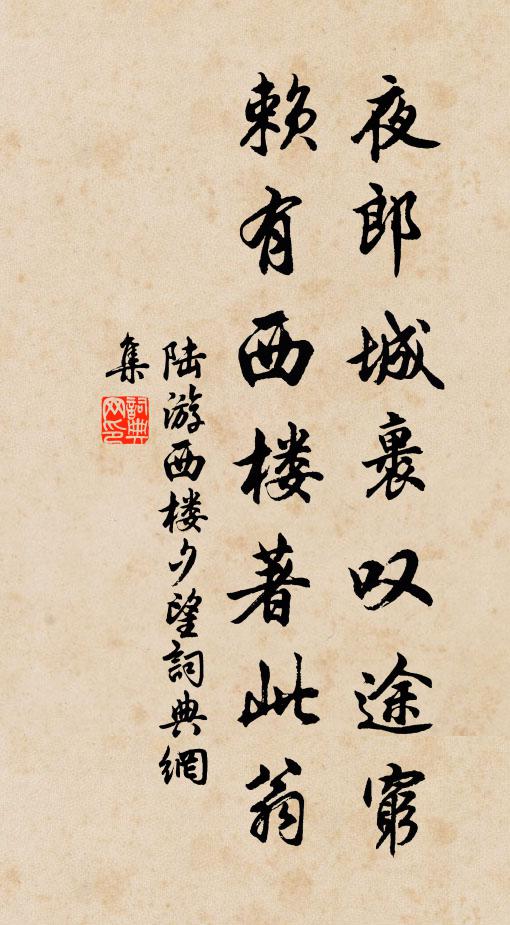 夜郎城裹叹途窮
賴有西楼著此翁
陆游西楼夕望詞典網
集
詞典网印